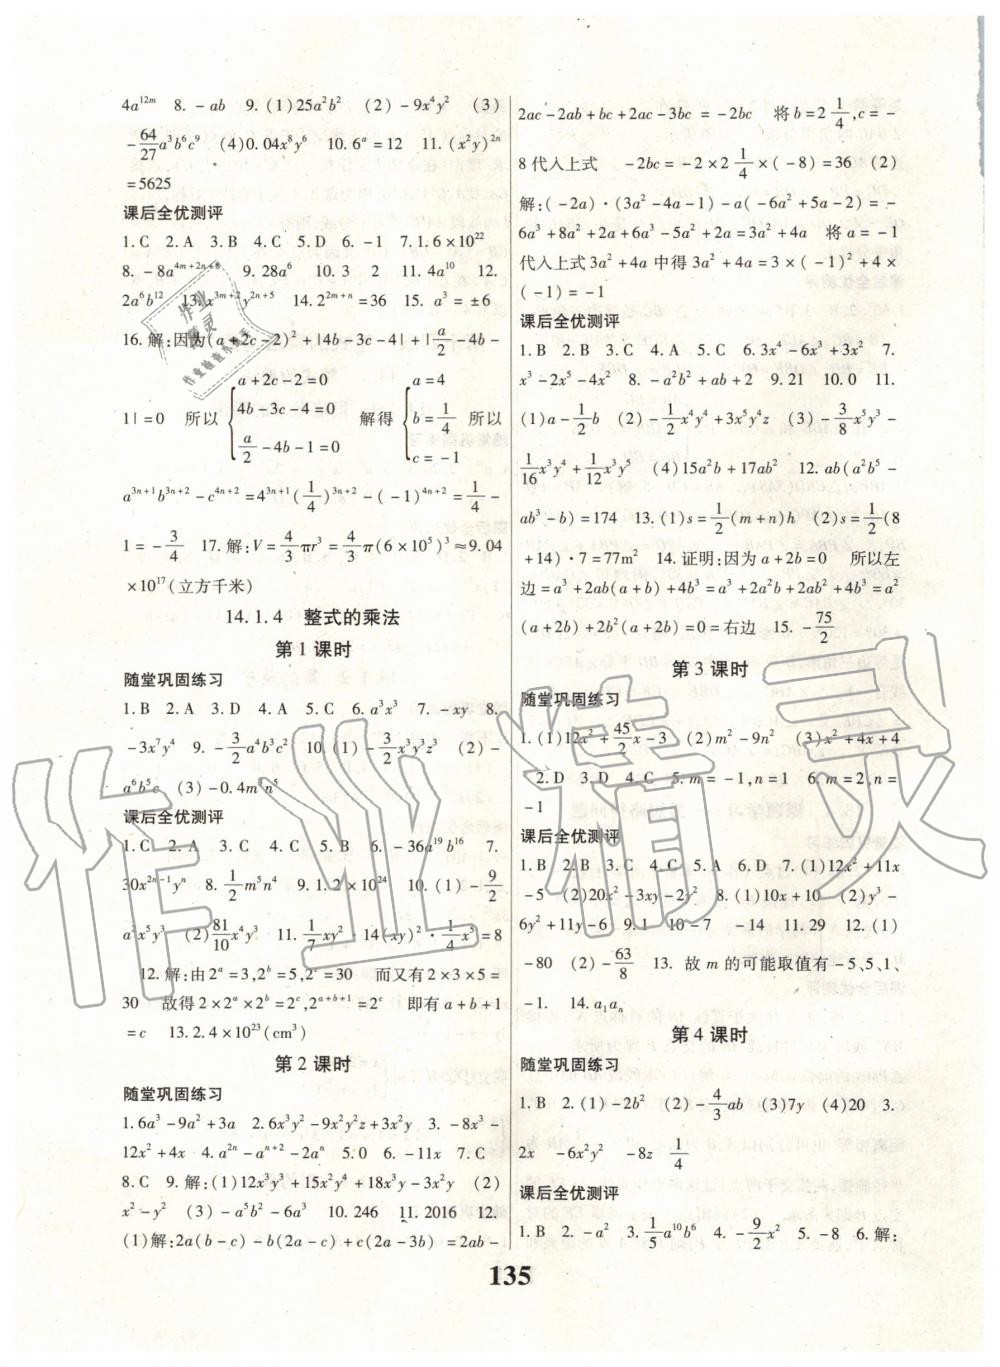 4a¹²ᵐ 8. −ab 9. (1)25a²b² (2)−9x⁴y² (3)
−64/27 a³b⁶c⁹ (4)0.04x⁸y⁶ 10. 6ᵃ=12 11. (x²y)²ⁿ
=5625
课后全优测评
1. C 2. A 3. B 4. C 5. D 6. −1 7. 1.6×10²²
8. −8a⁴ᵐ⁺²ⁿ⁺⁸ 9. 28a⁶ 10. 3 2 11. 4a¹⁰ 12.
2a⁶b¹² 13. x³ᵐ⁺²y²ⁿ⁺⁵ 14. 2²ᵐ⁺ⁿ=36 15. a³=±6
16. 解:因为(a+2c−2)²+|4b−3c−4|+|a/2−4b−
1|=0 所以{a+2c−2=0 4b−3c−4=0 a/2−4b−1=0 解得{a=4 b=1/4 c=−1 所以
a³ⁿ⁺¹b³ⁿ⁺²−c⁴ⁿ⁺²=4³ⁿ⁺¹(1/4)³ⁿ⁺²−(−1)⁴ⁿ⁺²=1/4−
1=−3/4 17. 解:V=4/3πr³=4/3π(6×10⁵)³≈9.04
×10¹⁷(立方千米)
14.1.4 整式的乘法
第1课时
随堂巩固练习
1. B 2. A 3. D 4. A 5. C 6. a³x³ 7. −xy 8.
−3x⁷y⁴ 9. −3/2a⁴b³c² 10. (1)−3/2x³y³z³ (2)−
a⁶b⁵c (3)−0.4m⁵n⁵
课后全优测评
1. C 2. A 3. C 4. C 5. B 6. −36a¹⁹b¹⁶ 7.
30x²ⁿ⁻¹yⁿ 8. 1/2m⁵n⁴ 9. 1.2×10²⁴ 10. (1)−9/2
a²x⁵y³ (2)81/10x⁴y³ 11. 1/7xy²·14(xy)²·1/4x⁵=8
12. 解:由2ᵃ=3,2ᵇ=5,2ᶜ=30 而又有2×3×5=
30 故得2×2ᵃ×2ᵇ=2ᶜ,2ᵃ⁺ᵇ⁺¹=2ᶜ 即有a+b+1
=c 13. 2.4×10²³(cm³)
第2课时
随堂巩固练习
1. 6a³−9a²+3a 2. 6x³y²−9x²y²z+3x²y 3. −8x³−
12x²+4x 4. a²ⁿ−aⁿ⁺²−2aⁿ 5. 0 6. −11x 7. C
8. C 9. 解:(1)12x³y³+15x²y⁴−18x²y−3xy² (2)
x²−y² (3)−a⁵b²−6a³ 10. 246 11. 2016 12.
(1)解:2a(b−c)−b(2a−c)+c(2a−3b)=2ab−
2ac−2ab+bc+2ac−3bc=−2bc 将b=2 1/4,c=−
8代入上式 −2bc=−2×2 1/4×(−8)=36 (2)
解:(−2a)·(3a²−4a−1)−a(−6a²+5a−2)=−
6a³+8a²+2a+6a³−5a²+2a=3a²+4a 将a=−1
代入上式3a²+4a中得3a²+4a=3×(−1)²+4×
(−1)=−1
课后全优测评
1. B 2. B 3. C 4. A 5. C 6. 3x⁴−6x³+3x² 7.
x³−2x⁵−4x² 8. −a²b²+ab+2 9. 21 10. 0 11.
(1)a−1/2b (2)−1/2x⁴y⁴+3x⁵y⁴z (3)−3/8x⁵y³−
1/16x³y⁴+1/12x³y⁵ (4)15a²b+17ab² 12. ab(a²b⁵−
ab³−b)=174 13. (1)s=1/2(m+n)h (2)s=1/2(8
+14)·7=77m² 14. 证明:因为a+2b=0 所以左
边=a³+2ab(a+b)+4b³=a³+2a²b+2ab²+4b³=a²
(a+2b)+2b²(a+2b)=0=右边 15. −75/2
第3课时
随堂巩固练习
1. (1)12x²+45/2x−3 (2)m²−9n² (3)x²+4x+4
2. D 3. D 4. C 5. m=−1,n=1 6. m=2,n=
−1
课后全优测评
1. B 2. B 3. C 4. C 5. A 6. D 7. (1)12x²+11x
−5 (2)20x²−3xy−2y² 8. (1)10x+10 (2)y³−
6y²+11y−6 9. 1 10. −7 −14 11. 29 12. (1)
−80 (2)−63/8 13. 故m的可能取值有−5、5、1、
−1. 14. a₁aₙ
第4课时
随堂巩固练习
1. B 2. (1)−2b² (2)−4/3ab (3)7y (4)20 3.
2x −6x²y² −8z 1/4
课后全优测评
1. B 2. −a² 3. 1/5a¹⁰b⁶ 4. −9/2x² 5. −8 6. 解:
135
作业精灵